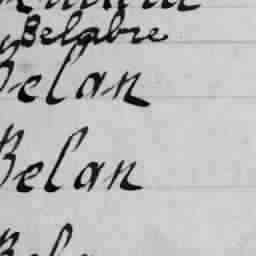 Belabre
Belan
Belan